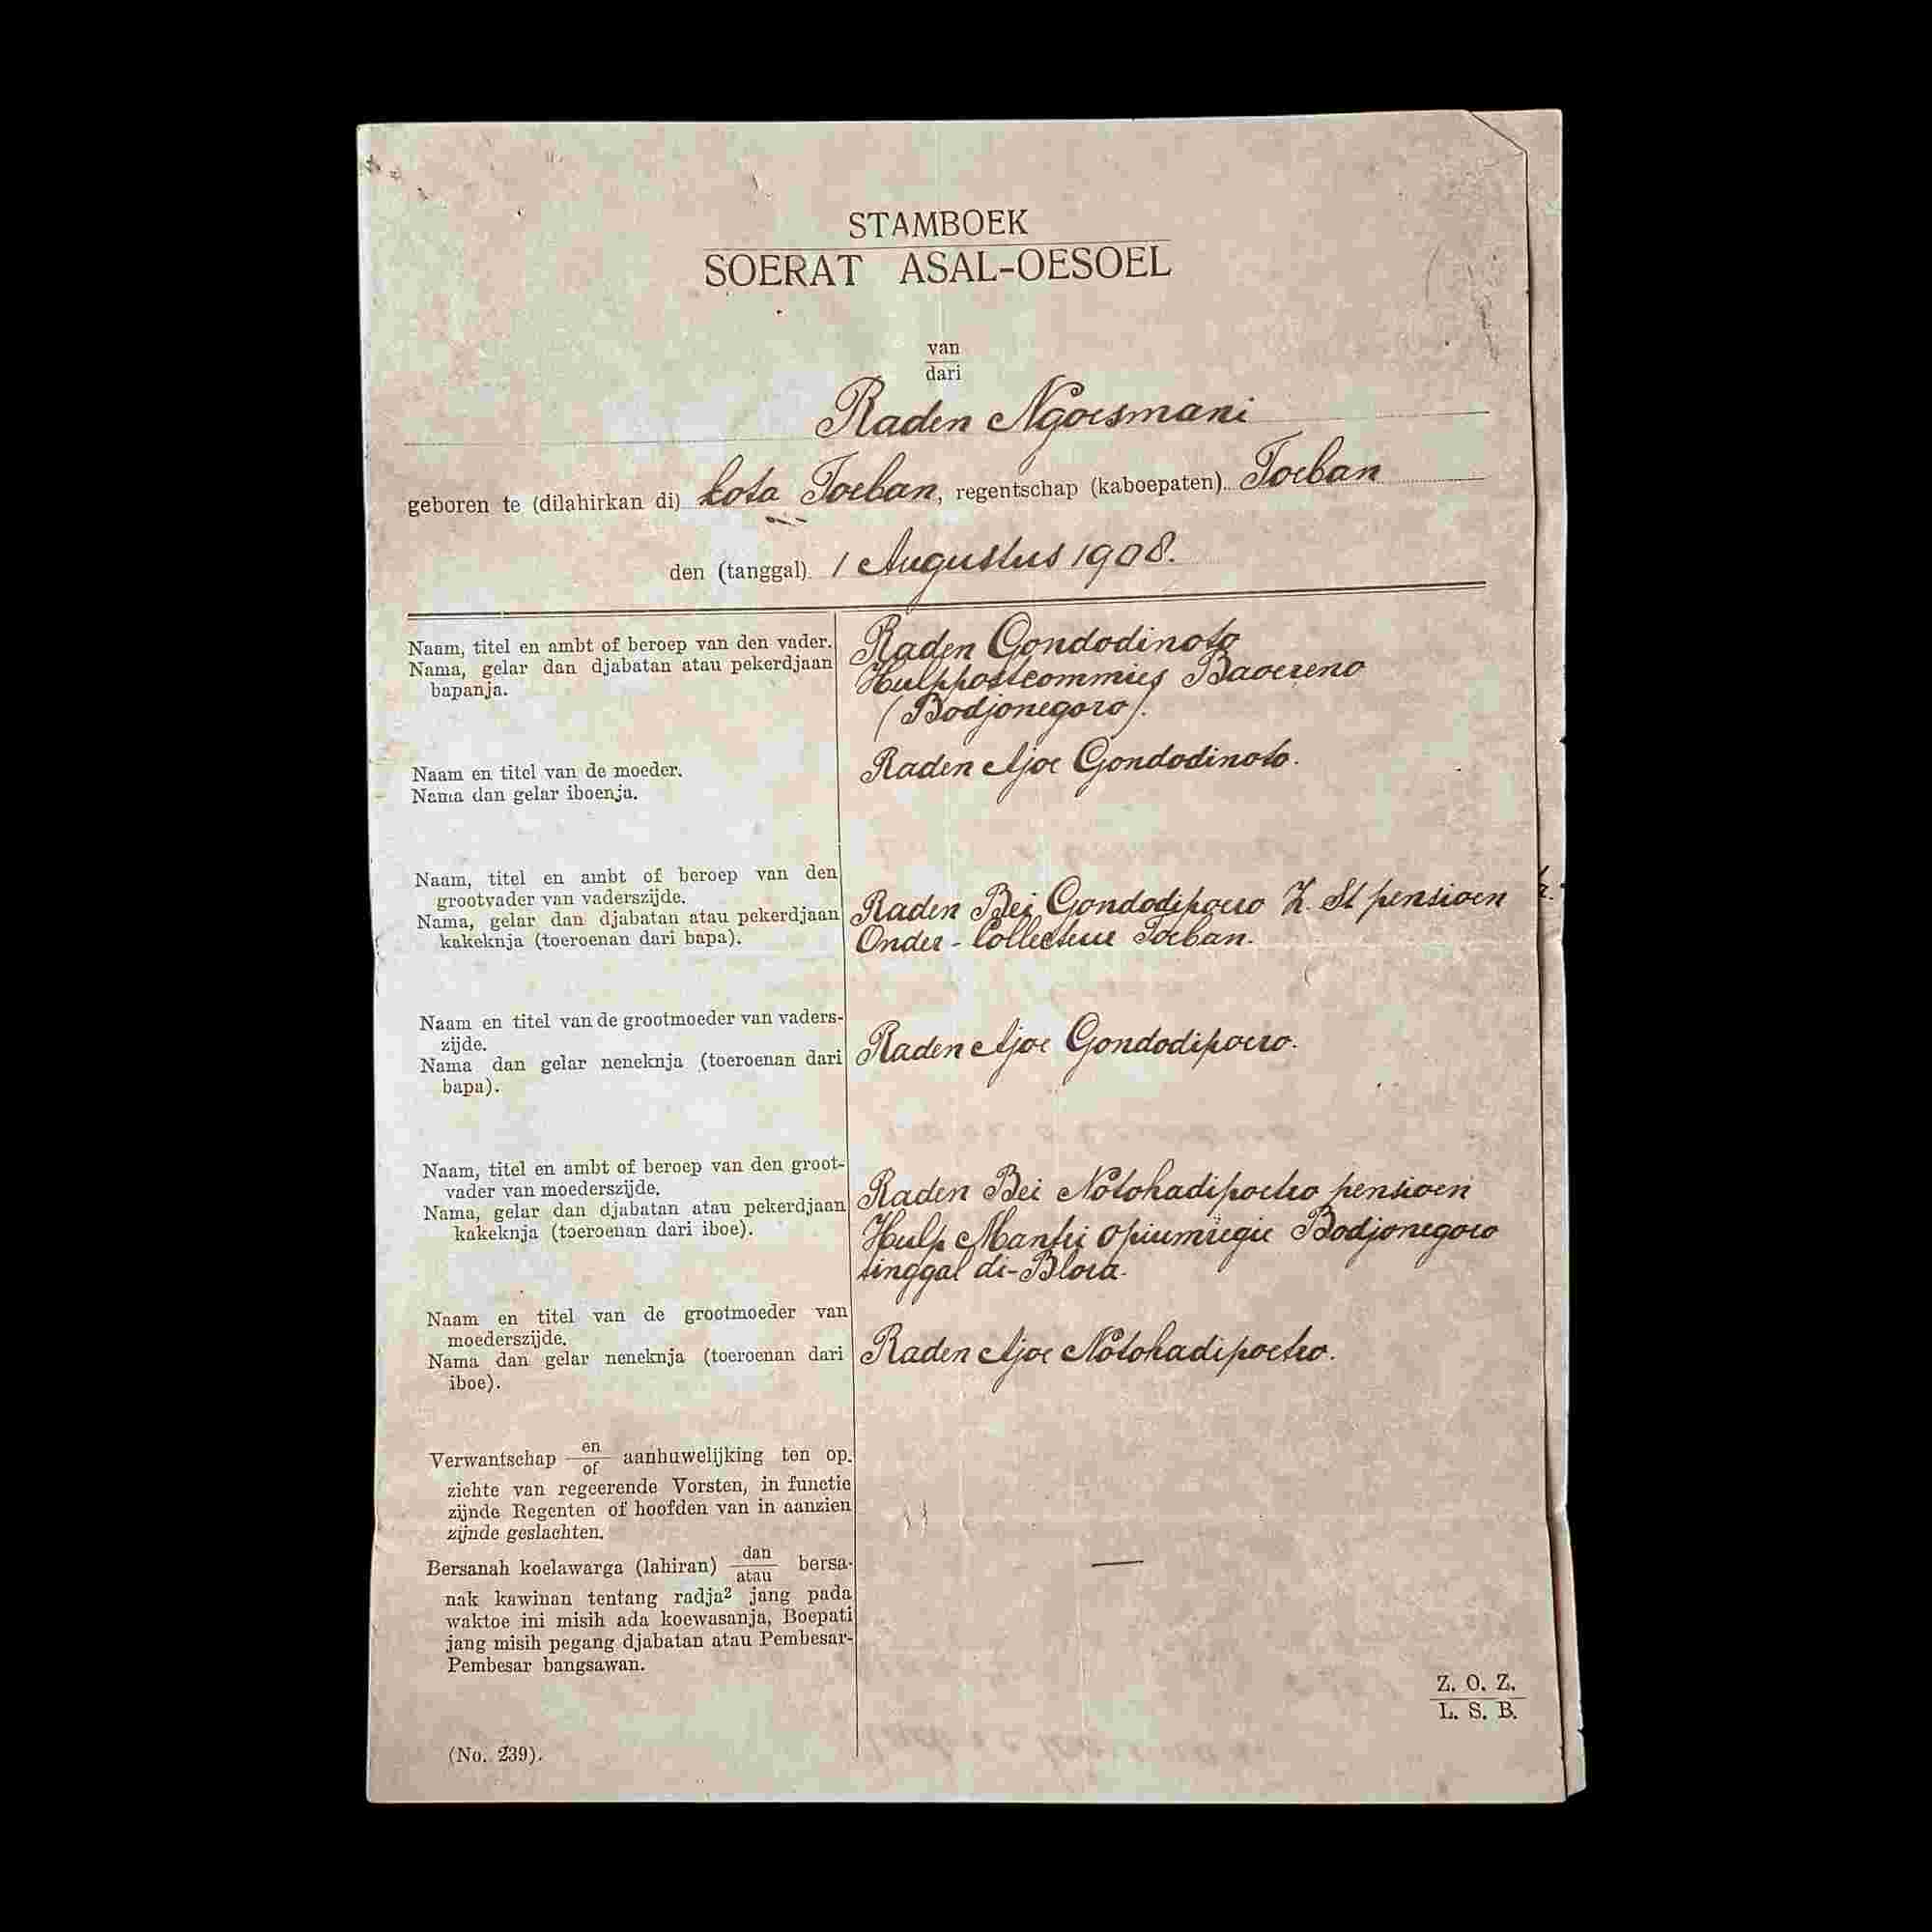 STAMBOEK
SOERAT ASAL-OESOEL
van
dari
Raden Ngoesmani
geboren te (dilahirkan di) kota Toeban, regentschap (kaboepaten) Toeban
den (tanggal) 1 Augustus 1908.
Naam, titel en ambt of beroep van den vader.
Nama, gelar dan djabatan atau pekerdjaan
bapanja.
Raden Gondodinoto
Hulppostcommies Baoereno
(Bodjonegoro).
Naam en titel van de moeder.
Nama dan gelar iboenja.
Raden Ajoe Gondodinoto.
Naam, titel en ambt of beroep van den
grootvader van vaderszijde.
Nama, gelar dan djabatan atau pekerdjaan
kakeknja (toeroenan dari bapa).
Raden Bei Gondodipoero Z. St pensioen
Onder-Collecteur Toeban.
Naam en titel van de grootmoeder van vaders-
zijde.
Nama dan gelar neneknja (toeroenan dari
bapa).
Raden Ajoe Gondodipoero.
Naam, titel en ambt of beroep van den groot-
vader van moederszijde.
Nama, gelar dan djabatan atau pekerdjaan
kakeknja (toeroenan dari iboe).
Raden Bei Notohadipoetro pensioen
Hulp Mantri Opiumregie Bodjonegoro
tinggal di-Blora.
Naam en titel van de grootmoeder van
moederszijde.
Nama dan gelar neneknja (toeroenan dari
iboe).
Raden Ajoe Notohadipoetro.
Verwantschap en/of aanhuwelijking ten op.
zichte van regeerende Vorsten, in functie
zijnde Regenten of hoofden van in aanzien
zijnde geslachten.
Bersanah koelawarga (lahiran) dan/atau bersa-
nak kawinan tentang radja² jang pada
waktoe ini misih ada koewasanja, Boepati
jang misih pegang djabatan atau Pembesar-
Pembesar bangsawan.
—
Z. O. Z.
L. S. B.
(No. 239).